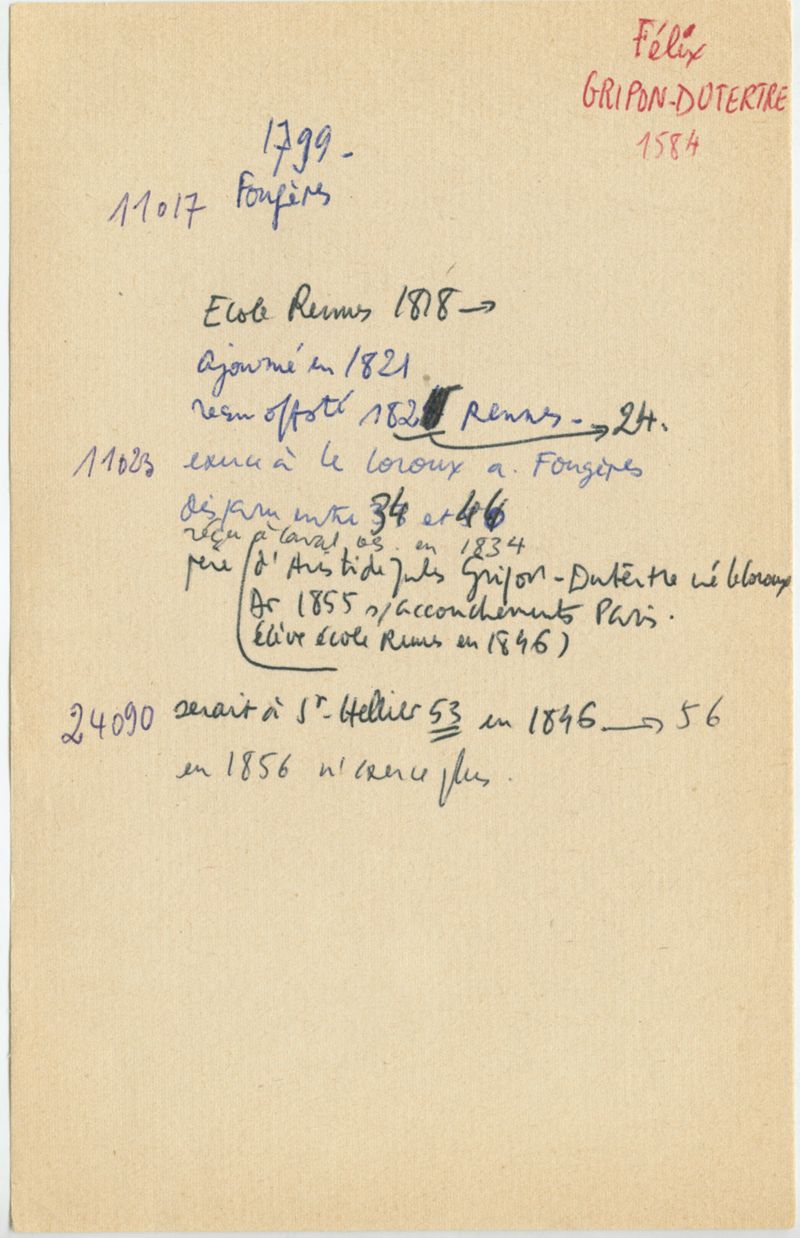 Félix
GRIPON-DUTERTRE
1584
1799-
11017 Fougères
Ecole Rennes 1818 →
ajourné en 1821
reçu off sté 182 Rennes - → 24.
11023 exerce à le loroux a. Fougères
disparu entre 34 et 46
reçu à Laval, os. en 1834
père (d'Aristide Jules Gripon-Dutertre né le loroux
Dr 1855 s/accouchements Paris.
élève école Rennes en 1846)
24090 serait à St-Hellier 53 en 1846 → 56
en 1856 n'exerce plus.